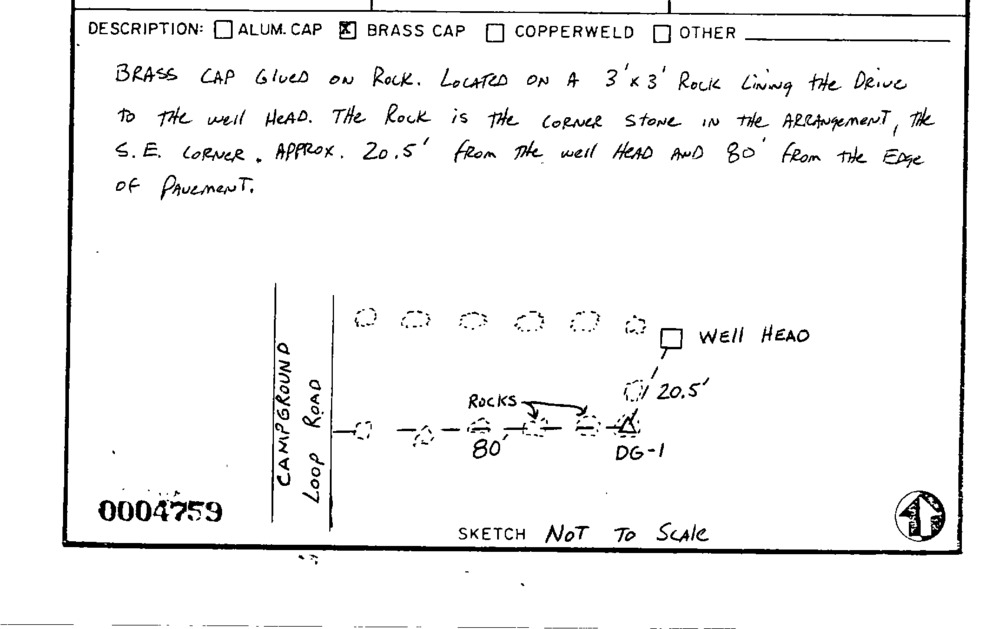 DESCRIPTION: ALUM. CAP X BRASS CAP COPPERWELD OTHER
BRASS CAP GLUED ON ROCK. LOCATED ON A 3'x3' ROCK LINING THE DRIVE
TO THE WELL HEAD. THE ROCK IS THE CORNER STONE IN THE ARRANGEMENT, THE
S.E. CORNER. APPROX. 20.5' FROM THE WELL HEAD AND 80' FROM THE EDGE
OF PAVEMENT.
CAMPGROUND
LOOP ROAD
WELL HEAD
20.5'
ROCKS
80'
DG-1
0004759
SKETCH NOT TO SCALE